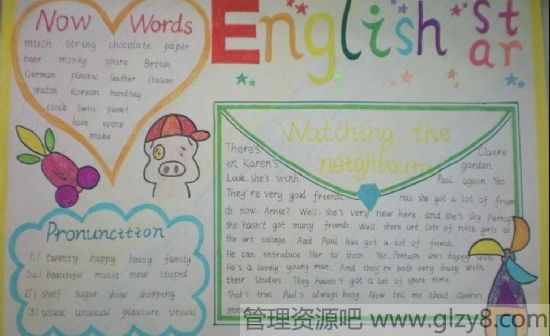 Now Words
much string chocolate paper
beer money spare British
German plastic leather Italian
watch Korean handbag
clock Swiss sweet
hate wine
make
English star
Watching the
neighbours
There's Claire
in Karen's garden
Look, she's with Paul again. Yes
They're very good friends. Has she got a lot of frien
ds now, Annie? Well, she's very new here and she's shy Perhaps
she hasn't got many friends. Well, there are lots of nice girls at
the art college. And Paul has got a lot of friends.
He can introduce Her to them. Yes. Perhaps she's happy with
He's a lovely young man. And they're both very busy with
their studies. They haven't got a lot of spare time.
That's true. Paul's always busy. Now tell me about Claire's
Pronunction
[i] twenty happy heavy family
beautiful music new stuped
[ʃ] shelf sugar show shopping
[ʒ] usual unusual pleasure visual
管理资源吧 www.glzy8.com